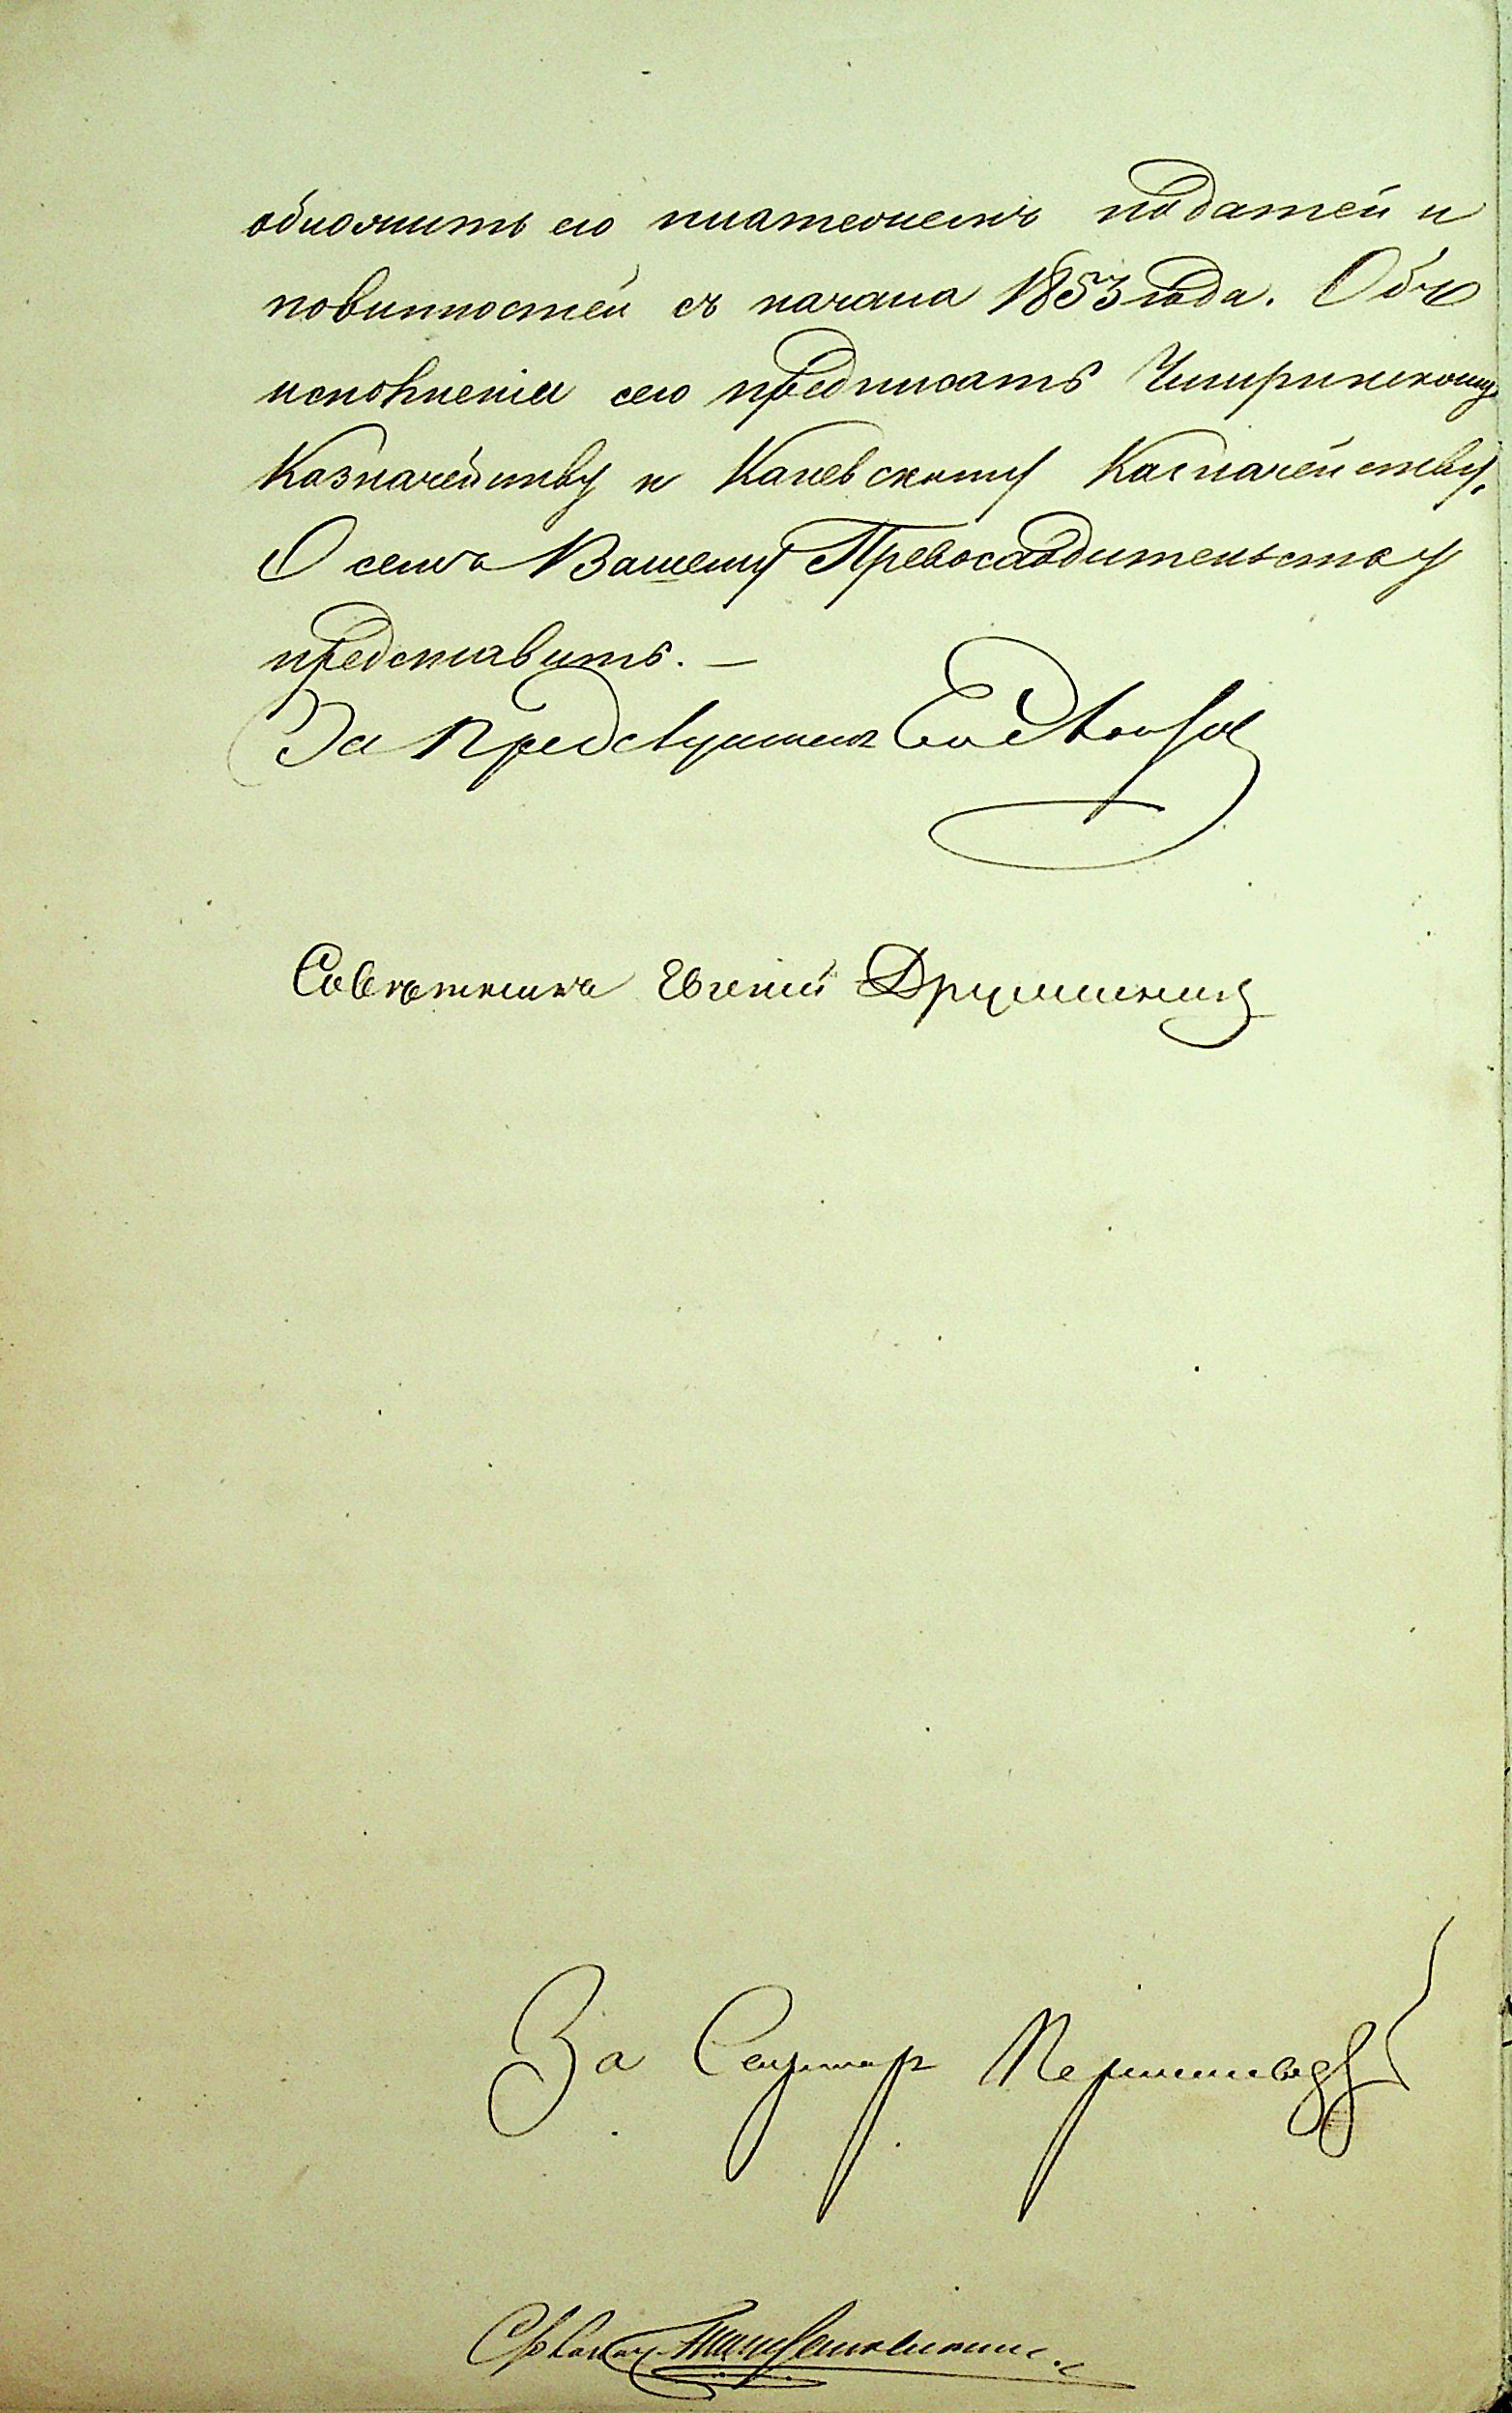 обложить его платежемъ податей и
повинностей съ начала 1853 года. Объ
исполненіи сего предписать Чигиринскому
Казначейству и Каневскому Казначейству.
О семъ Вашему Превосходительству
представить. —
За Председателя
Советникъ Евгеній
За Секретаря